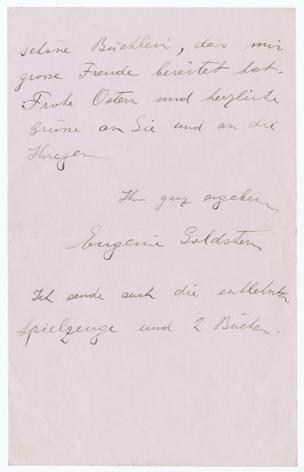 schöne Büchlein, das mir
grosse Freude bereitet hat.
Frohe Ostern und herzliche
Grüsse an Sie und an die
Ihrigen
Ihre ganz ergebene
Eugenie Goldstern
Ich sende auch die entlehnten
Spielzeuge und 2 Bücher.